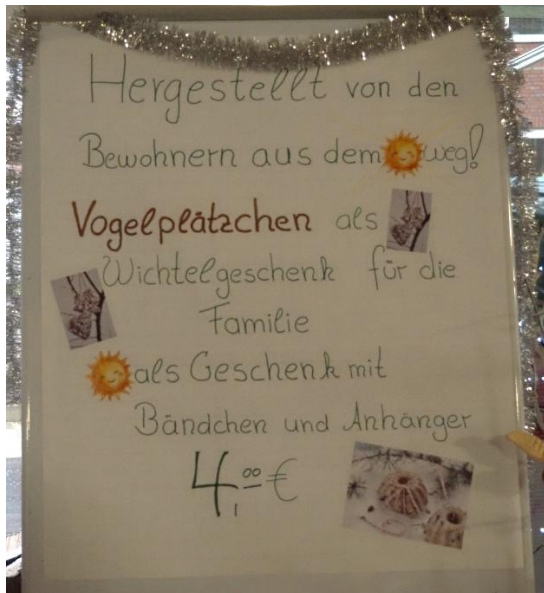 Hergestellt von den
Bewohnern aus dem weg!
Vogelplätzchen als
Wichtelgeschenk für die
Familie
als Geschenk mit
Bändchen und Anhänger
4,00 €